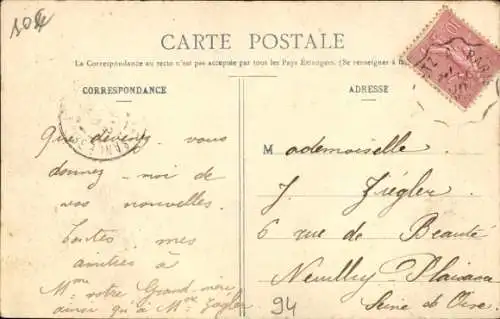 10€
CARTE POSTALE
La Correspondance au recto n'est pas acceptée par tous les Pays Étrangers. (Se renseigner à la
CORRESPONDANCE
ADRESSE
Que devenez vous
donnez-moi de
vos nouvelles.
Toutes mes
amitiés à
Mme votre Grand mère
ainsi qu'à Mr Zégler
Mademoiselle
J. Ziégler
6 rue de Beauté
Neuilly Plaisance
Seine & Oise
94